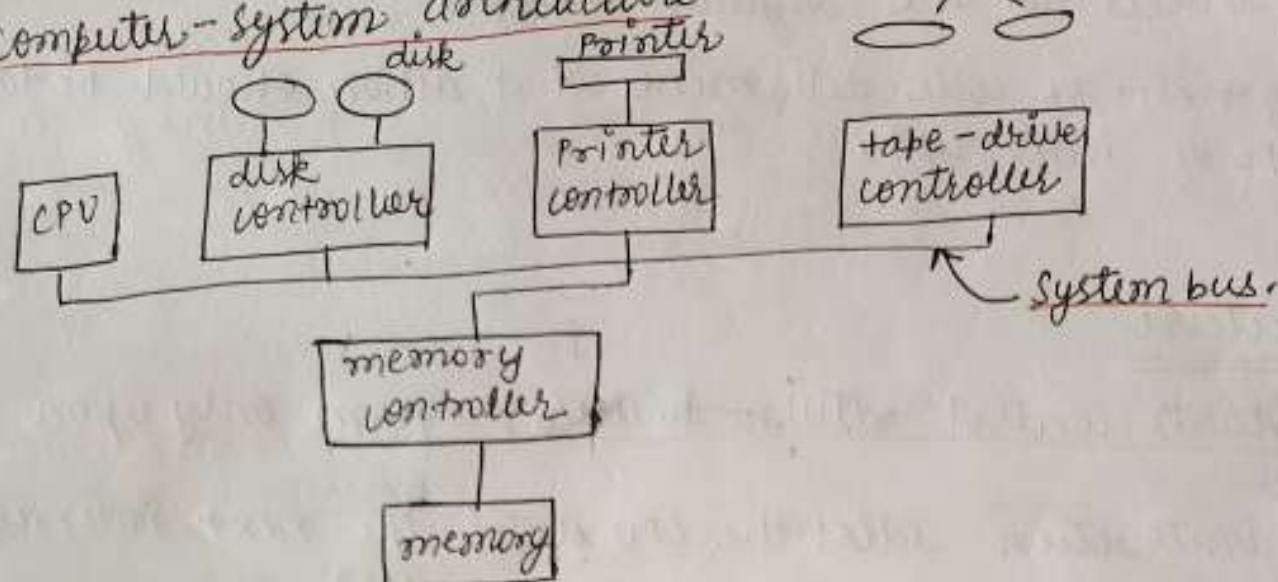 computer-system architecture
disk
Printer
CPU
disk
controller
Printer
controller
tape-drive
controller
System bus.
memory
controller
memory